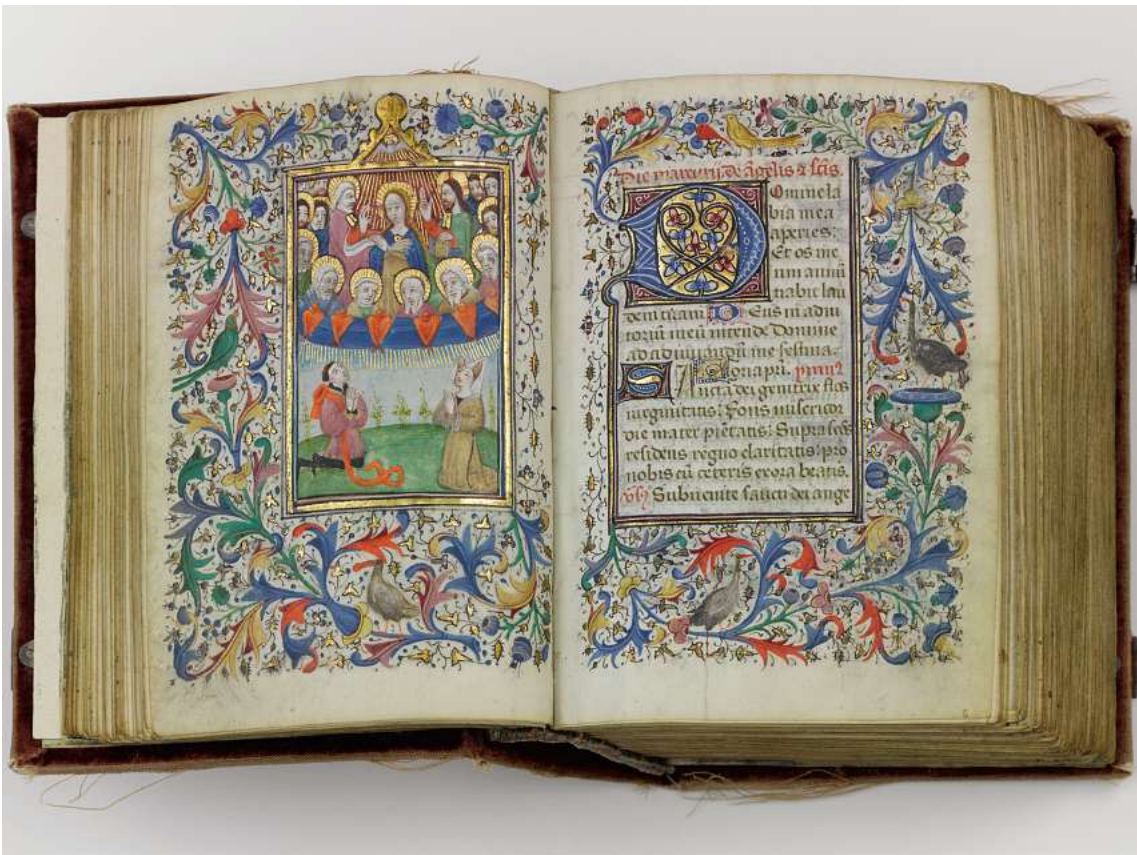 Die mercurij de angelis & scis.
Omine la
bia mea
aperies:
Et os me
um annū
tiabit lau
dem tuam D Eus in adiu
toriū meū intende Domine
ad adiuuandū me festina.
Gloria pri.
SAncta dei genitrix flos
uirginitatis: Fons misericor
die mater pietatis: Supra scōs
residens regno claritatis: pro
nobis cū ceteris exora beatis
Subuenite sancti dei ange